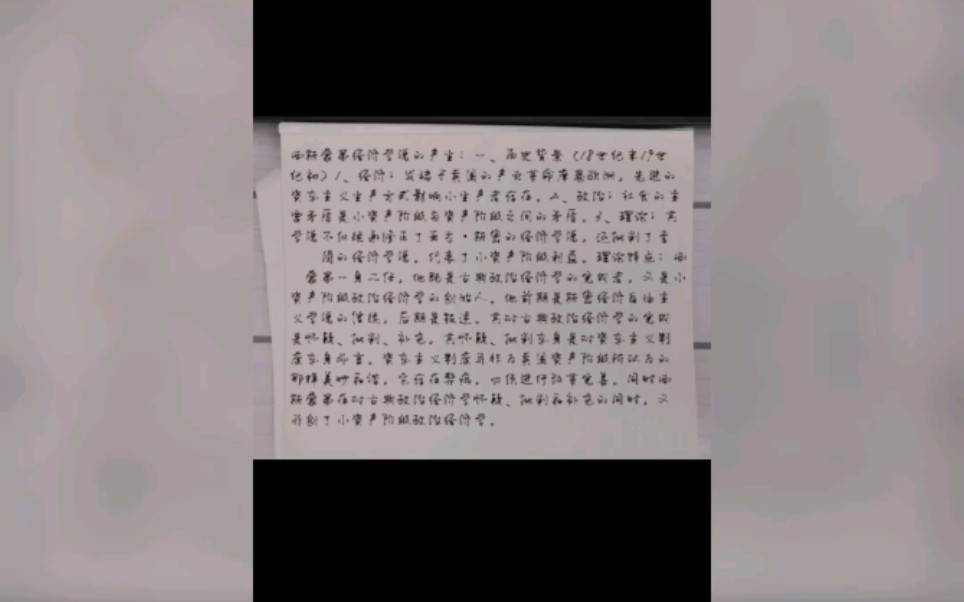 西斯蒙第经济学说的产生：一、历史背景（18世纪末19世
纪初）1、经济：发端于英法的产业革命席卷欧洲，先进的
资本主义生产方式影响小生产者存在。2、政治：社会的主
要矛盾是小资产阶级与资产阶级之间的矛盾。3、理论：其
学说不仅继承修正了亚当·斯密的经济学说，还批判了李
的经济学说，代表了小资产阶级利益。理论特点：西
蒙第一身二任，他既是古典政治经济学的完成者，又是小
资产阶级政治经济学的创始人。他前期是斯密经济自由主
义学说的信徒，后期是叛逆。其对古典政治经济学的完成
是怀疑、批判、补充，其怀疑、批判本身是对资本主义制
度本身而言。资本主义制度并非为英法资产阶级所认为的
那样美妙和谐，它存在弊病，必须进行改革完善。同时西
斯蒙第在对古典政治经济学怀疑、批判和补充的同时，又
开创了小资产阶级政治经济学。